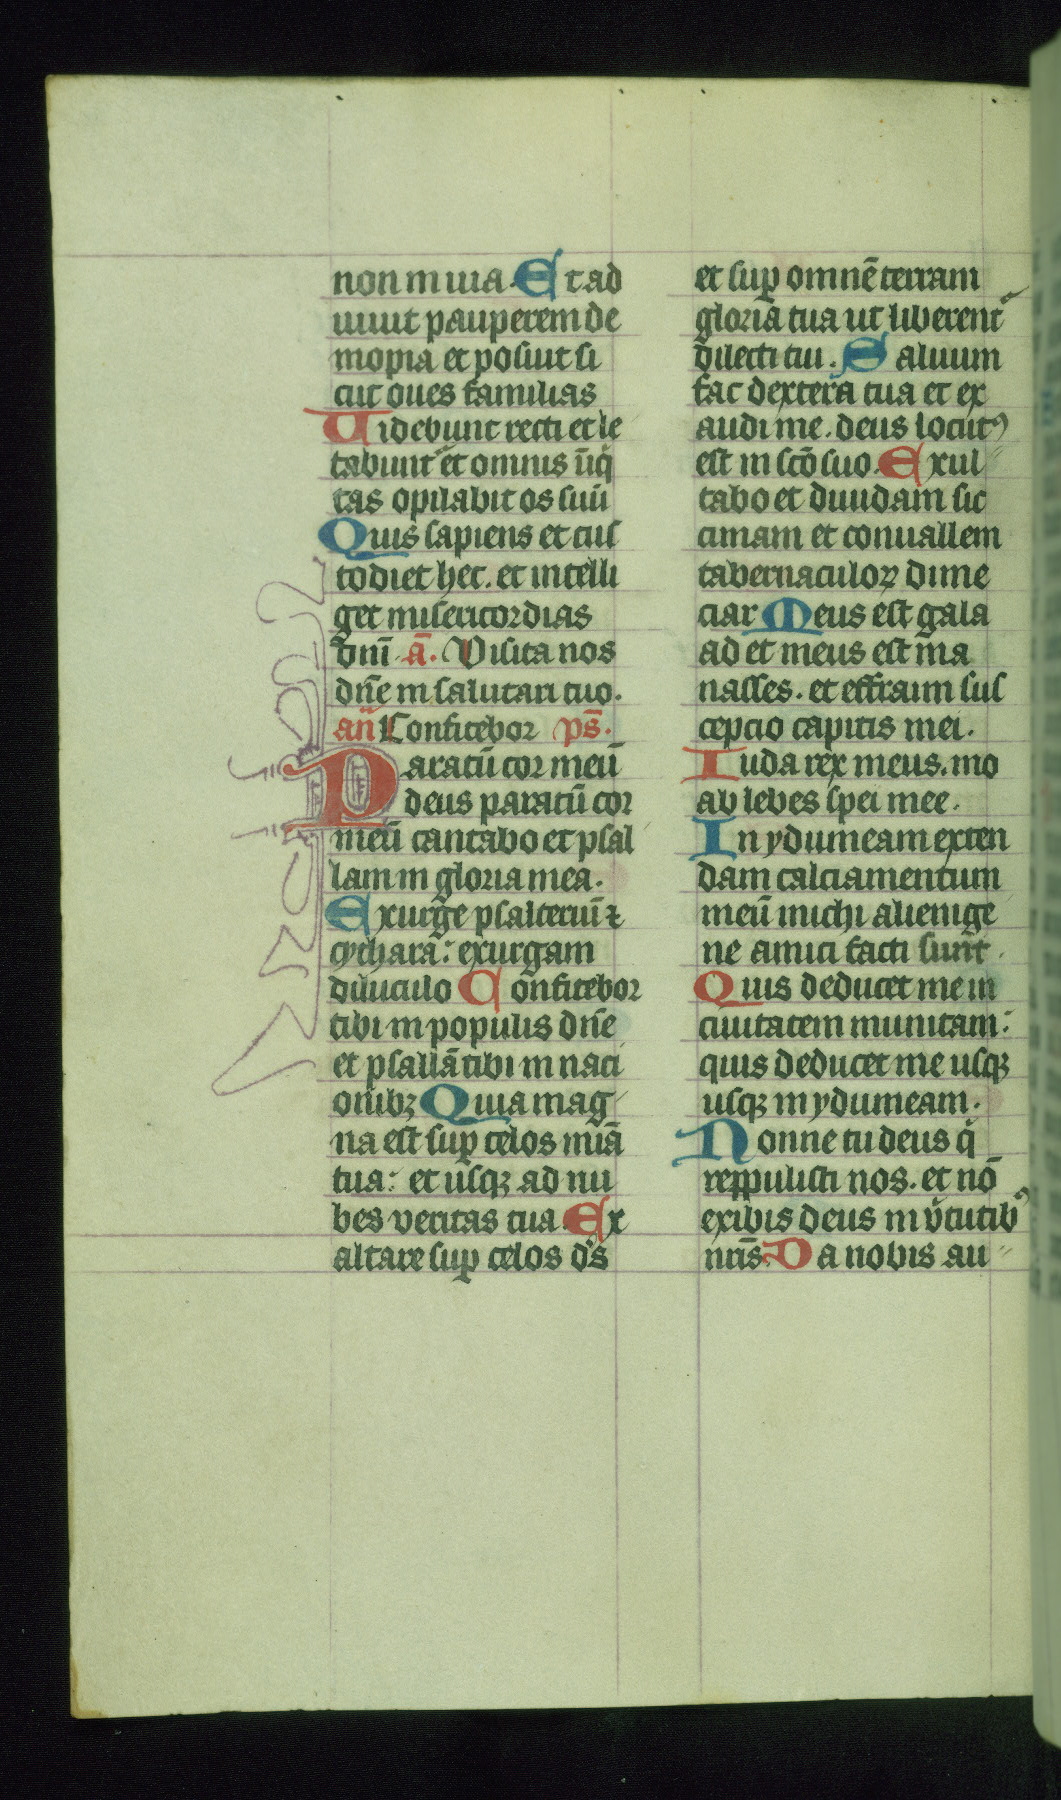 non in uia. Et ad
iuuit pauperem de
inopia et posiuit si
cut oues familias
Uidebunt recti et le
tabunt et omnis iniq̄
tas opilabit os suū
Quis sapiens et cus
todiet hec. et intelli
get misericordias
dn̄i. ā. Uisita nos
dn̄e in salutari tuo.
an̄ Confitebor ps̄.
Paratū cor meū
deus paratū cor
meū cantabo et psal
lam in gloria mea.
Exurge psalteriū ⁊
cythara: exurgam
diluculo Confitebor
tibi in populis dn̄e
et psallā tibi in naci
onibꝫ Quia mag
na est suꝑ celos mīa
tua: et usqꝫ ad nu
bes veritas tua. Ex
altare suꝑ celos ds̄
et suꝑ omnē terram
gloriā tua ut liberent᷑
dilecti tui. Saluum
fac dextera tua et ex
audi me. deus locutꝰ
est in sc̄o suo. Exul
tabo et diuidam sic
cimam et conuallem
tabernaculoꝝ dime
ciar Meus est gala
ad et meus est ma
nasses. et effraim sus
cepcio capitis mei.
Iuda rex meus. mo
ab lebes spei mee.
In ydumeam exten
dam calciamentum
meū michi alienige
ne amici facti sunt.
Quis deducet me in
ciuitatem munitam:
quis deducet me usqꝫ
usqꝫ in ydumeam.
Nonne tu deus q̄
reppulisti nos. et nō
exibis deus in v̄tutibꝰ
nr̄is. Da nobis au